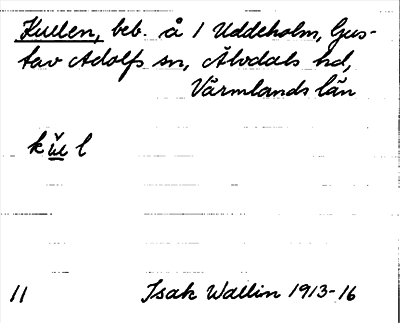 Kullen, beb. å 1 Uddeholm, Gus-
tav Adolfs sn, Älvdals hd,
Värmlands län
kŭl
11 Isak Wallin 1913-16